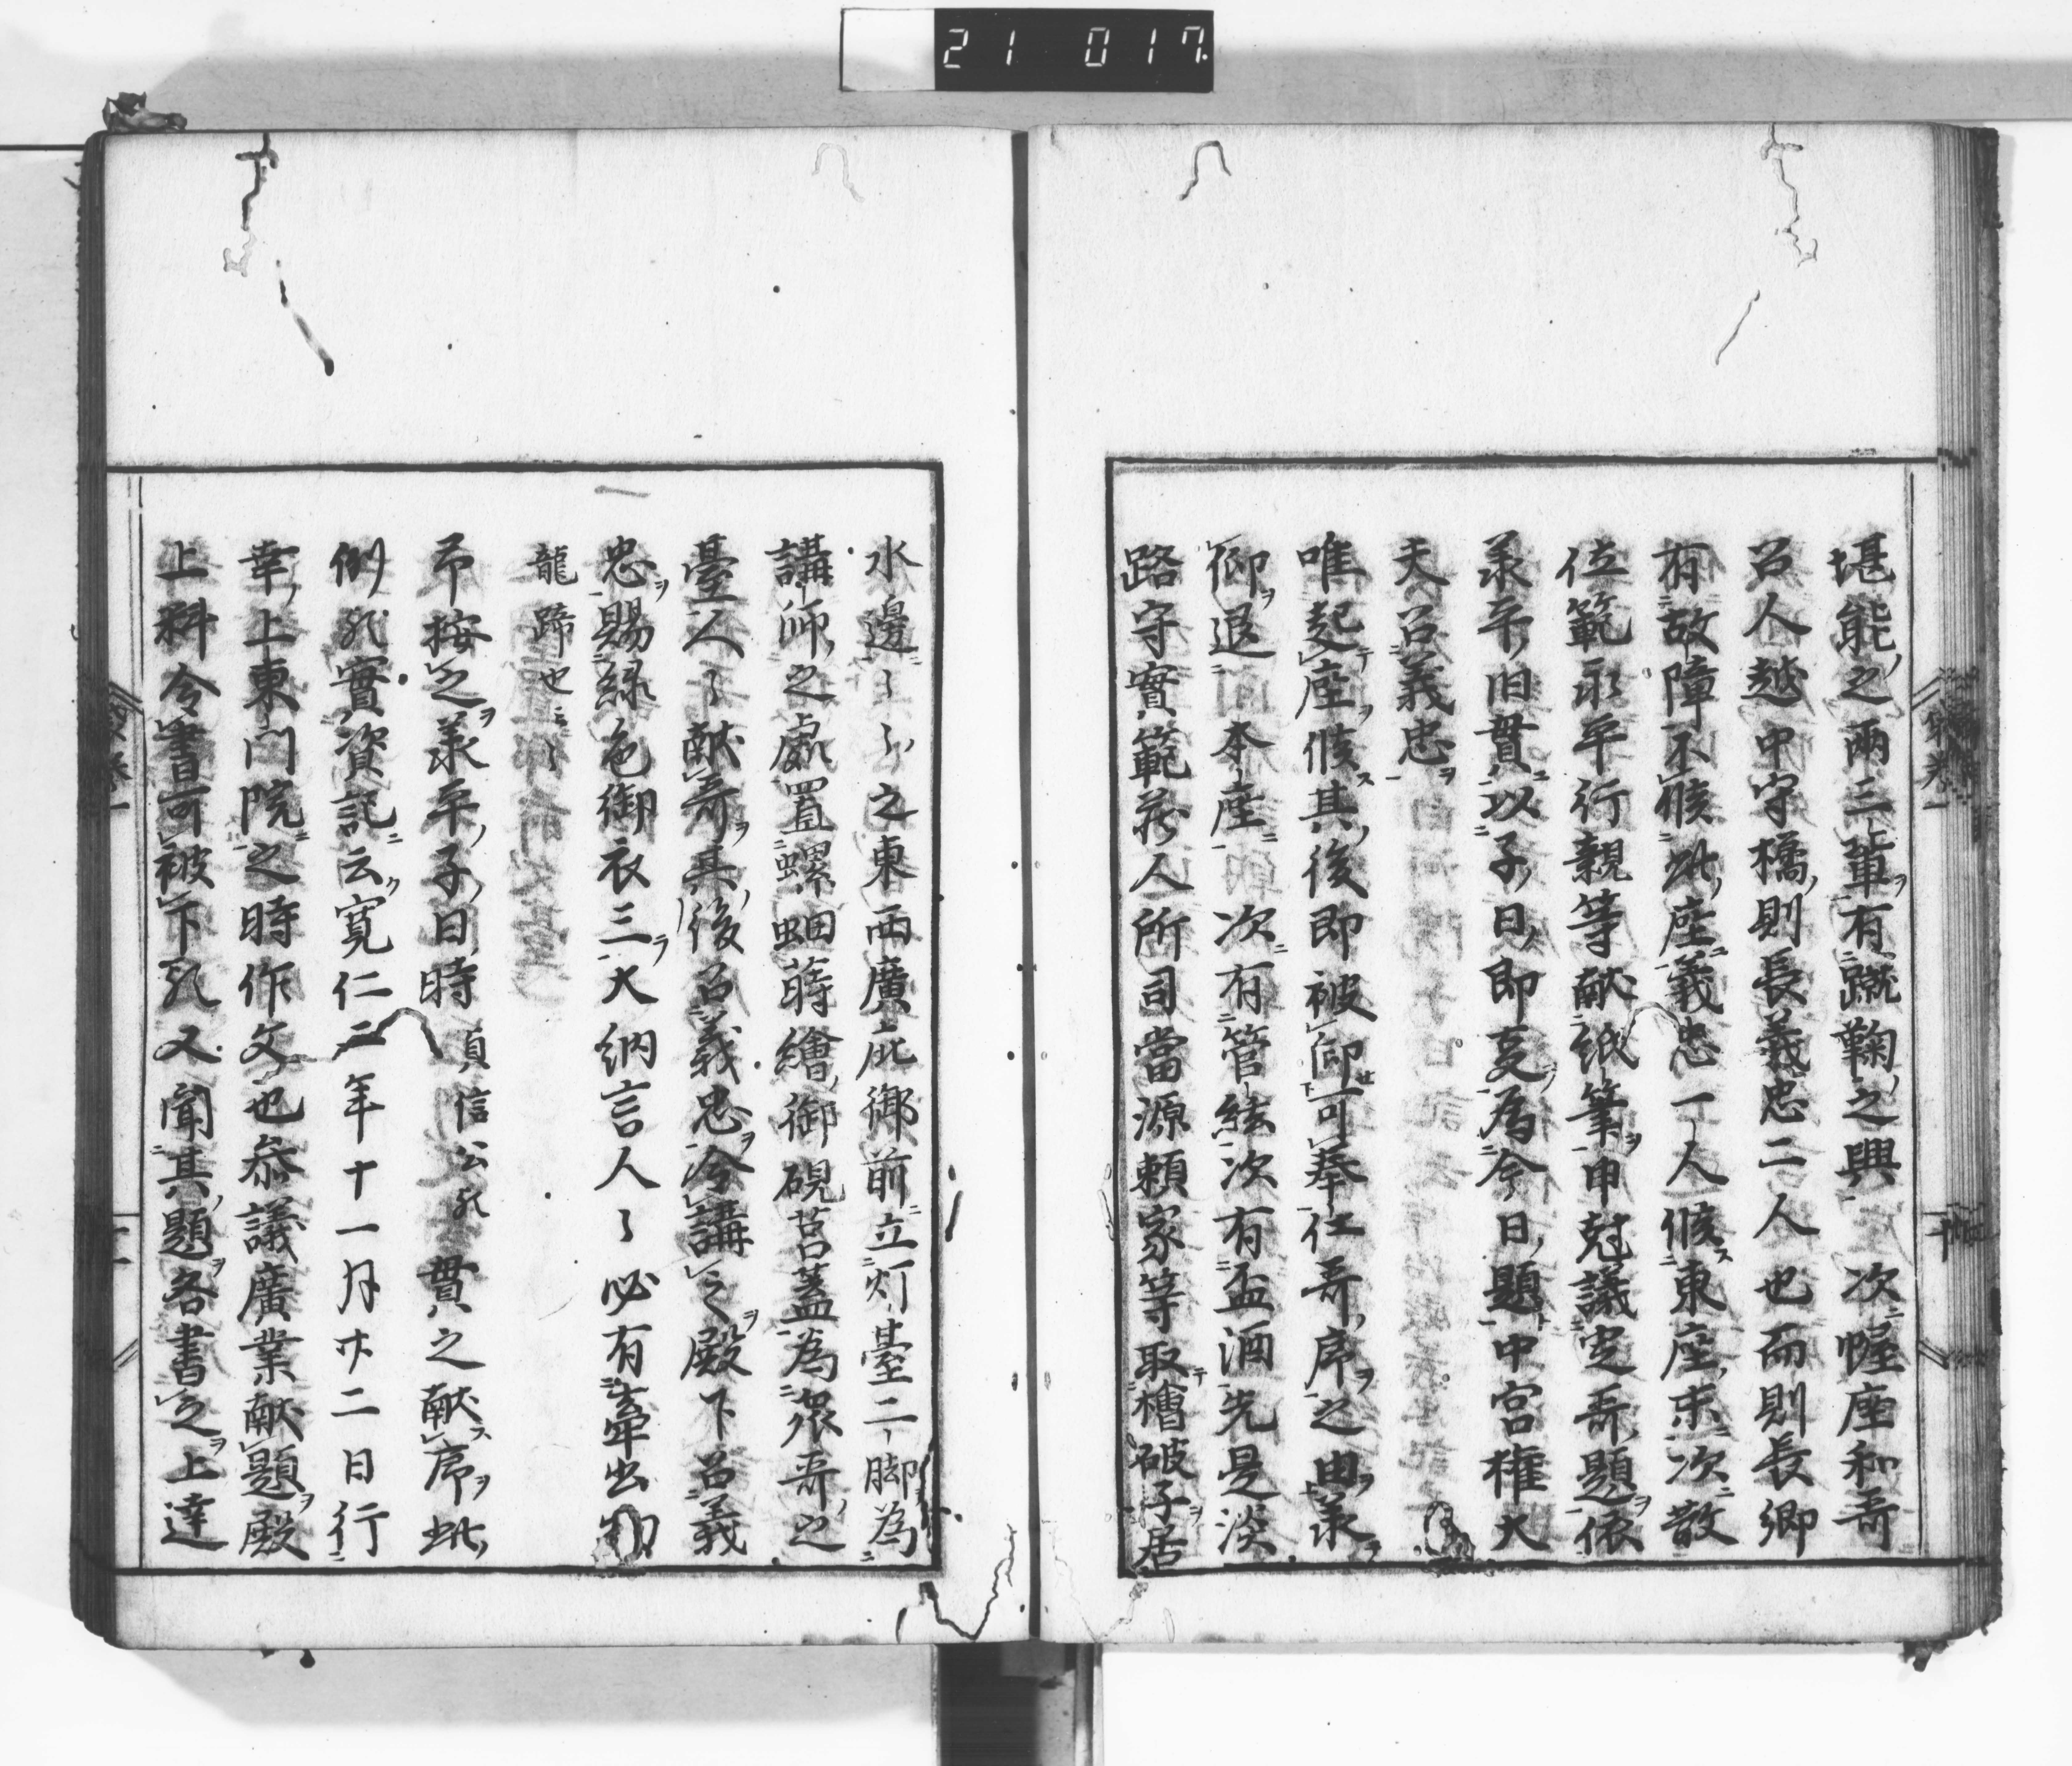 堪能之兩三輩有蹴鞠之興 次幄座和哥
召人越中守橘則長義忠二人也而則長卿
有故障不候此座義忠一人候東座末次散
位範永平行親等献紙筆申尅議定哥題依
承平旧貫以子日即夏為今日題中宮権大
夭召義忠
唯起座候其後即被仰可奉仕哥序之由承
仰退 本座 次有管絃次有盃酒先是淡
路守實範蔵人所司當源頼家等取檜破子居
水邊〻〻之東西廣庇御前立灯臺二脚為
講師之處置螺鈿蒔繪御硯筥蓋為衆哥之
臺人〻献哥其後召義忠令講之殿下召義
忠賜緑色御衣三大納言人〻必有牽出
龍蹄也云〻
予按之承平子日時 貞信公記 貫之献序此
例記實資記云寛仁二年十一月廿二日行
幸上東門院之時作文也参議廣業献題殿
上料令書可被下記又聞其題各書之上達
21 017